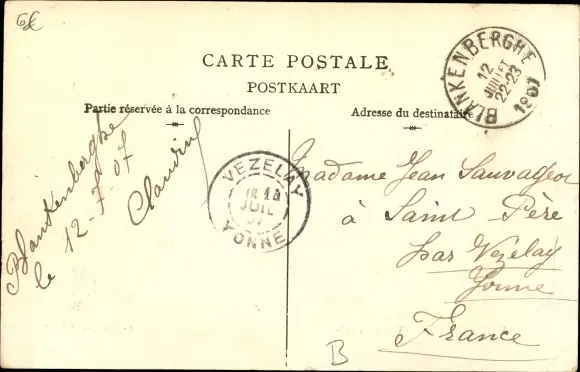 6f
CARTE POSTALE
POSTKAART
Partie réservée à la correspondance
Adresse du destinataire
BLANKENBERGHE
12
JUILLET
22-23
1907
Blankenberghe
le 12-7-07
VEZELAY
14
JUIL
YONNE
Madame Jean Sauvageot
à Saint Père
par Vezelay
Yonne
France
B